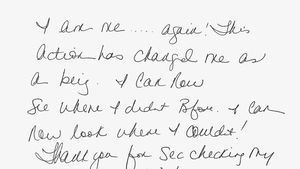 I am me ..... again! This
action has changed me as
a being. I can now
see where I didnt Bfore. I can
now look where I couldnt!
Thank you for Sec checking my